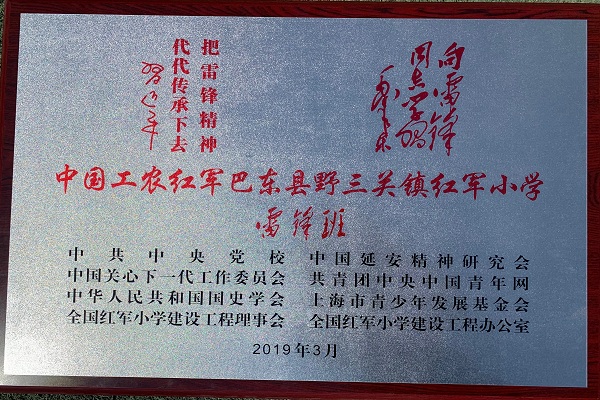 向雷锋
同志学习
毛泽东
把雷锋精神
代代传承下去
习近平
中国工农红军巴东县野三关镇红军小学
雷锋班
中共中央党校 中国延安精神研究会
中国关心下一代工作委员会 共青团中央中国青年网
中华人民共和国国史学会 上海市青少年发展基金会
全国红军小学建设工程理事会 全国红军小学建设工程办公室
2019年3月